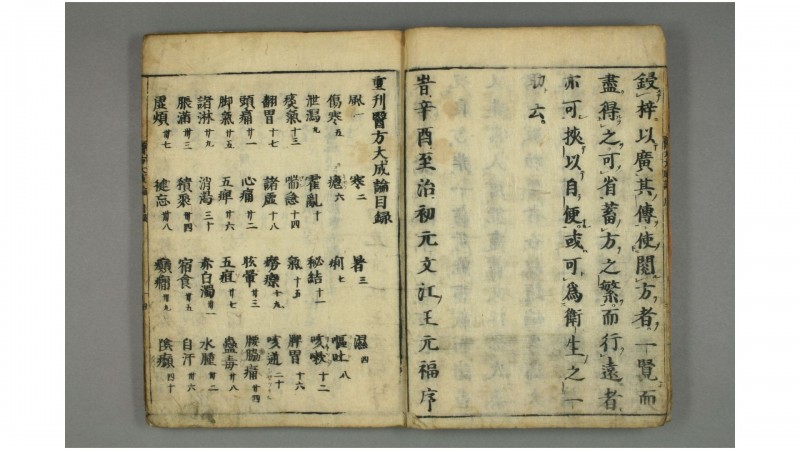 鋟梓以廣其傳使閱方者一覧而
盡得之可省蓄方之繁而行遠者
亦可挾以自便或可為衛生之一
助云
旹辛酉至治初元文江王元福序
重刊醫方大成論目録
風一 寒二 暑三 濕四
傷寒五 瘧六 痢七 嘔吐八
泄瀉九 霍亂十 秘結十一 咳嗽十二
痰氣十三 喘急十四 氣十五 脾胃十六
翻胃十七 諸虛十八 勞瘵十九 咳逆二十
頭痛廿一 心痛廿二 眩暈廿三 腰脇痛廿四
脚氣廿五 五痺廿六 五疸廿七 蠱毒廿八
諸淋廿九 消渇三十 赤白濁卅一 水腫卅二
脹滿卅三 積聚卅四 宿食卅五 自汗卅六
虛煩卅七 健忘卅八 癲癇卅九 陰㿗四十